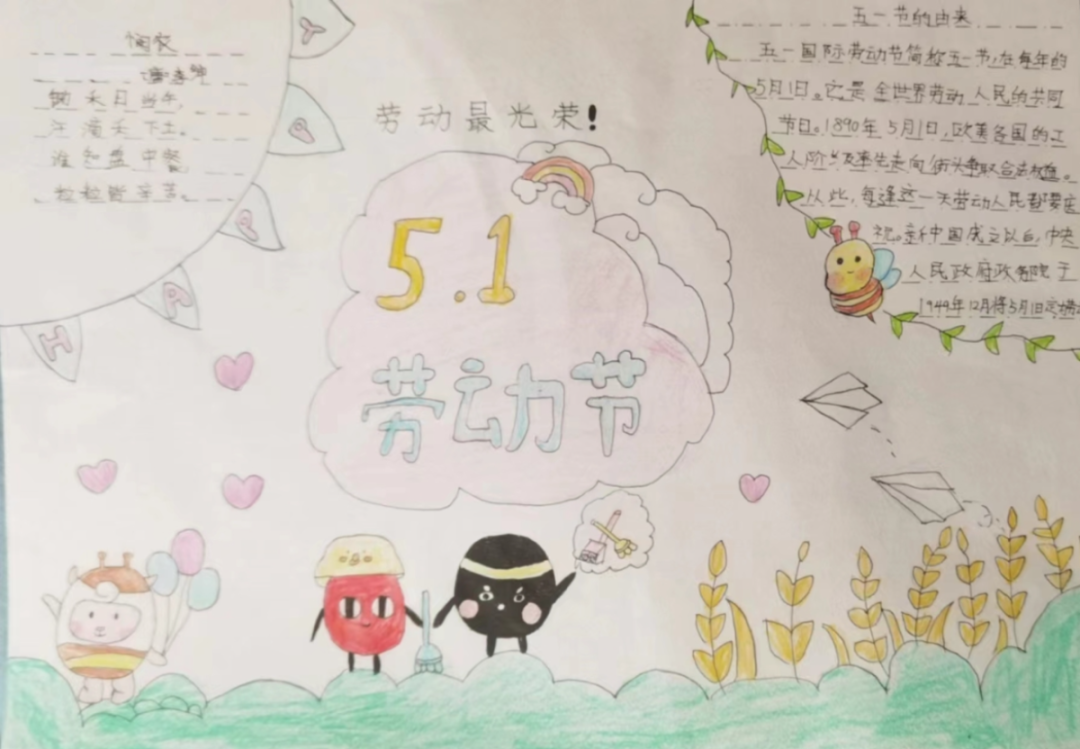 悯农
锄禾日当午,
汗滴禾下土。
谁知盘中餐
粒粒皆辛苦。
HAPPY
劳动最光荣!
5.1
劳动节
五一节的由来
五一国际劳动节简称五一节,在每年的
5月1日。它是全世界劳动人民的共同
节日。1890年5月1日,欧美各国的工
人阶级率先走向街头争取合法权益。
从此,每逢这一天劳动人民都要庆
祝。新中国成立以后,中央
人民政府政务院于
1949年12月将5月1日定